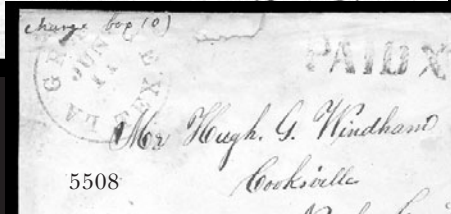 charge box 10)
LA GRANGE TEXAS
JUN
11
PAID X
Mr Hugh. G. Windham
Cooksville
5508